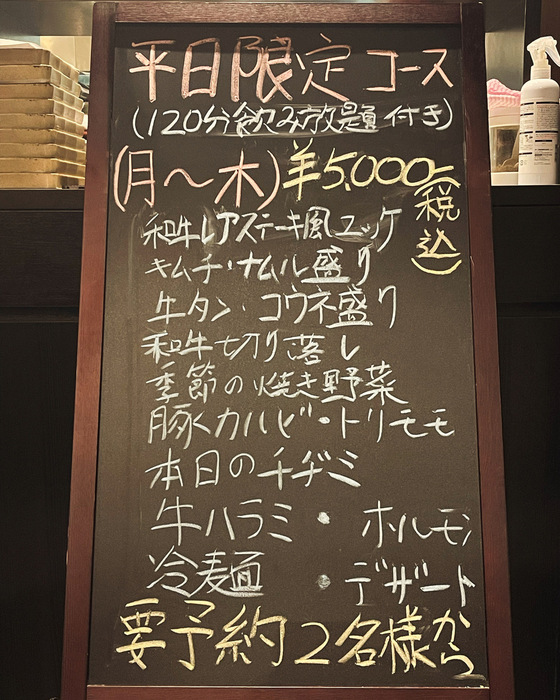 平日限定コース
(120分飲み放題付き)
(月〜木)¥5,000-(税込)
和牛レアステーキ風ユッケ
キムチ・ナムル盛り
牛タン・コウネ盛り
和牛切り落し
季節の焼き野菜
豚カルビ・トリモモ
本日のチヂミ
牛ハラミ・ホルモン
冷麺・デザート
要予約2名様から